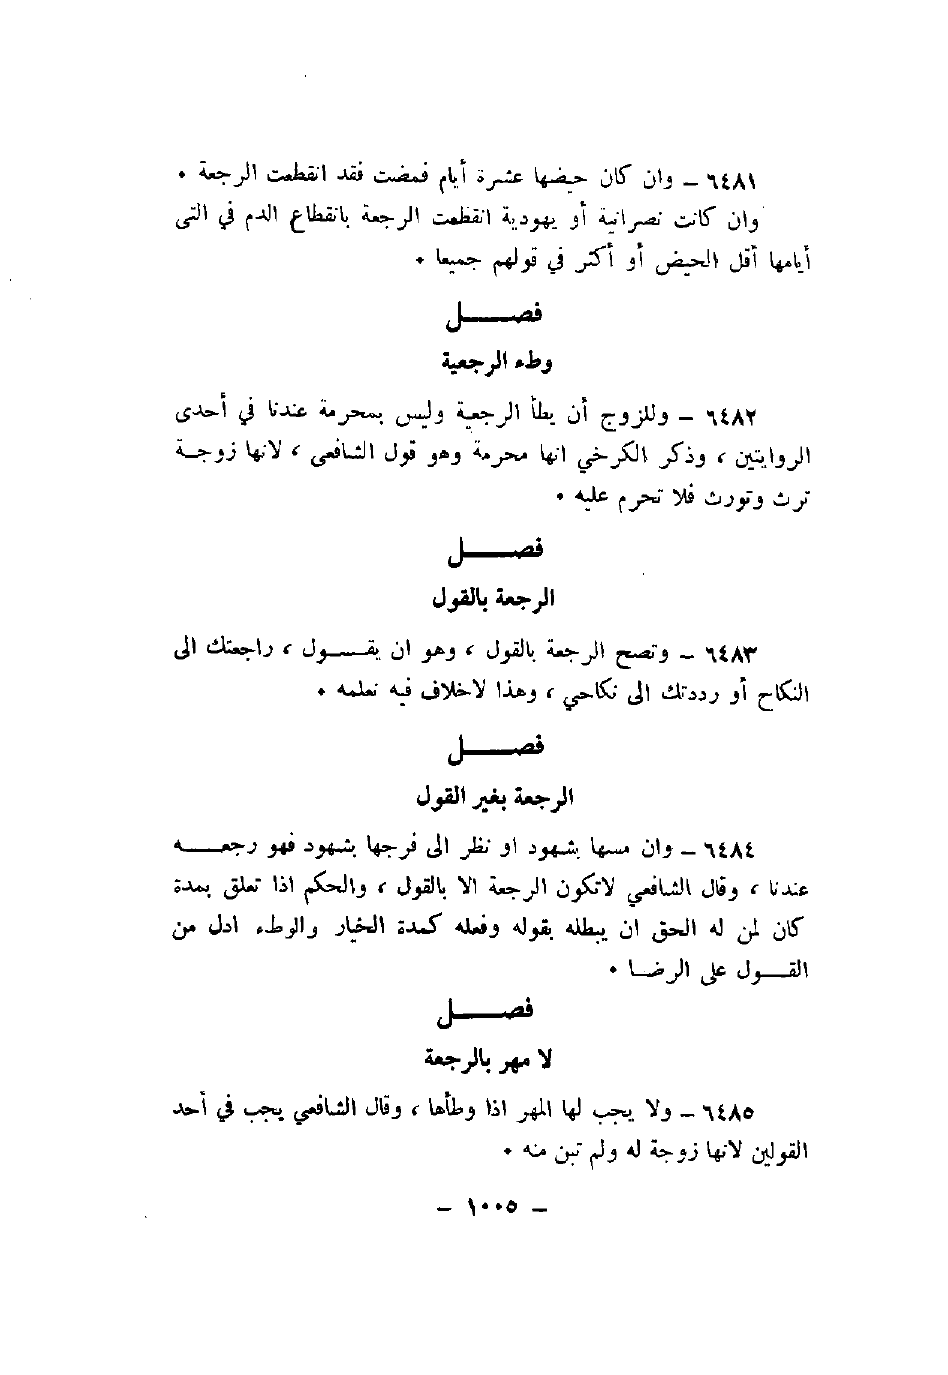 ٦٤٨١ ــ وان كان حيضها عشرة أيام فمضت فقد انقطعت الرجعة ٠
وان كانت نصرانية أو يهودية انقطعت الرجعة بانقطاع الدم في التى
أيامها أقل الحيض أو أكثر في قولهم جميعا ٠
فصـــــل
وطء الرجعية
٦٤٨٢ ــ وللزوج أن يطأ الرجعية وليس بمحرمة عندنا في أحدى
الروايتين ، وذكر الكرخي انها محرمة وهو قول الشافعى ، لانها زوجـة
ترث وتورث فلا تحرم عليه ٠
فصـــــل
الرجعة بالقول
٦٤٨٣ ــ وتصح الرجعة بالقول ، وهو ان يقـــول ، راجعتك الى
النكاح أو رددتك الى نكاحي ، وهذا لاخلاف فيه نعلمه ٠
فصـــــل
الرجعة بغير القول
٦٤٨٤ ــ وان مسها بشهود او نظر الى فرجها بشهود فهو رجعـــه
عندنا ، وقال الشافعي لاتكون الرجعة الا بالقول ، والحكم اذا تعلق بمدة
كان لمن له الحق ان يبطله بقوله وفعله كمدة الخيار والوطء ادل من
القـــول على الرضـا ٠
فصـــــل
لا مهر بالرجعة
٦٤٨٥ ــ ولا يجب لها المهر اذا وطأها ، وقال الشافعي يجب في أحد
القولين لانها زوجة له ولم تبن منه ٠
ــ ١٠٠٥ ــ